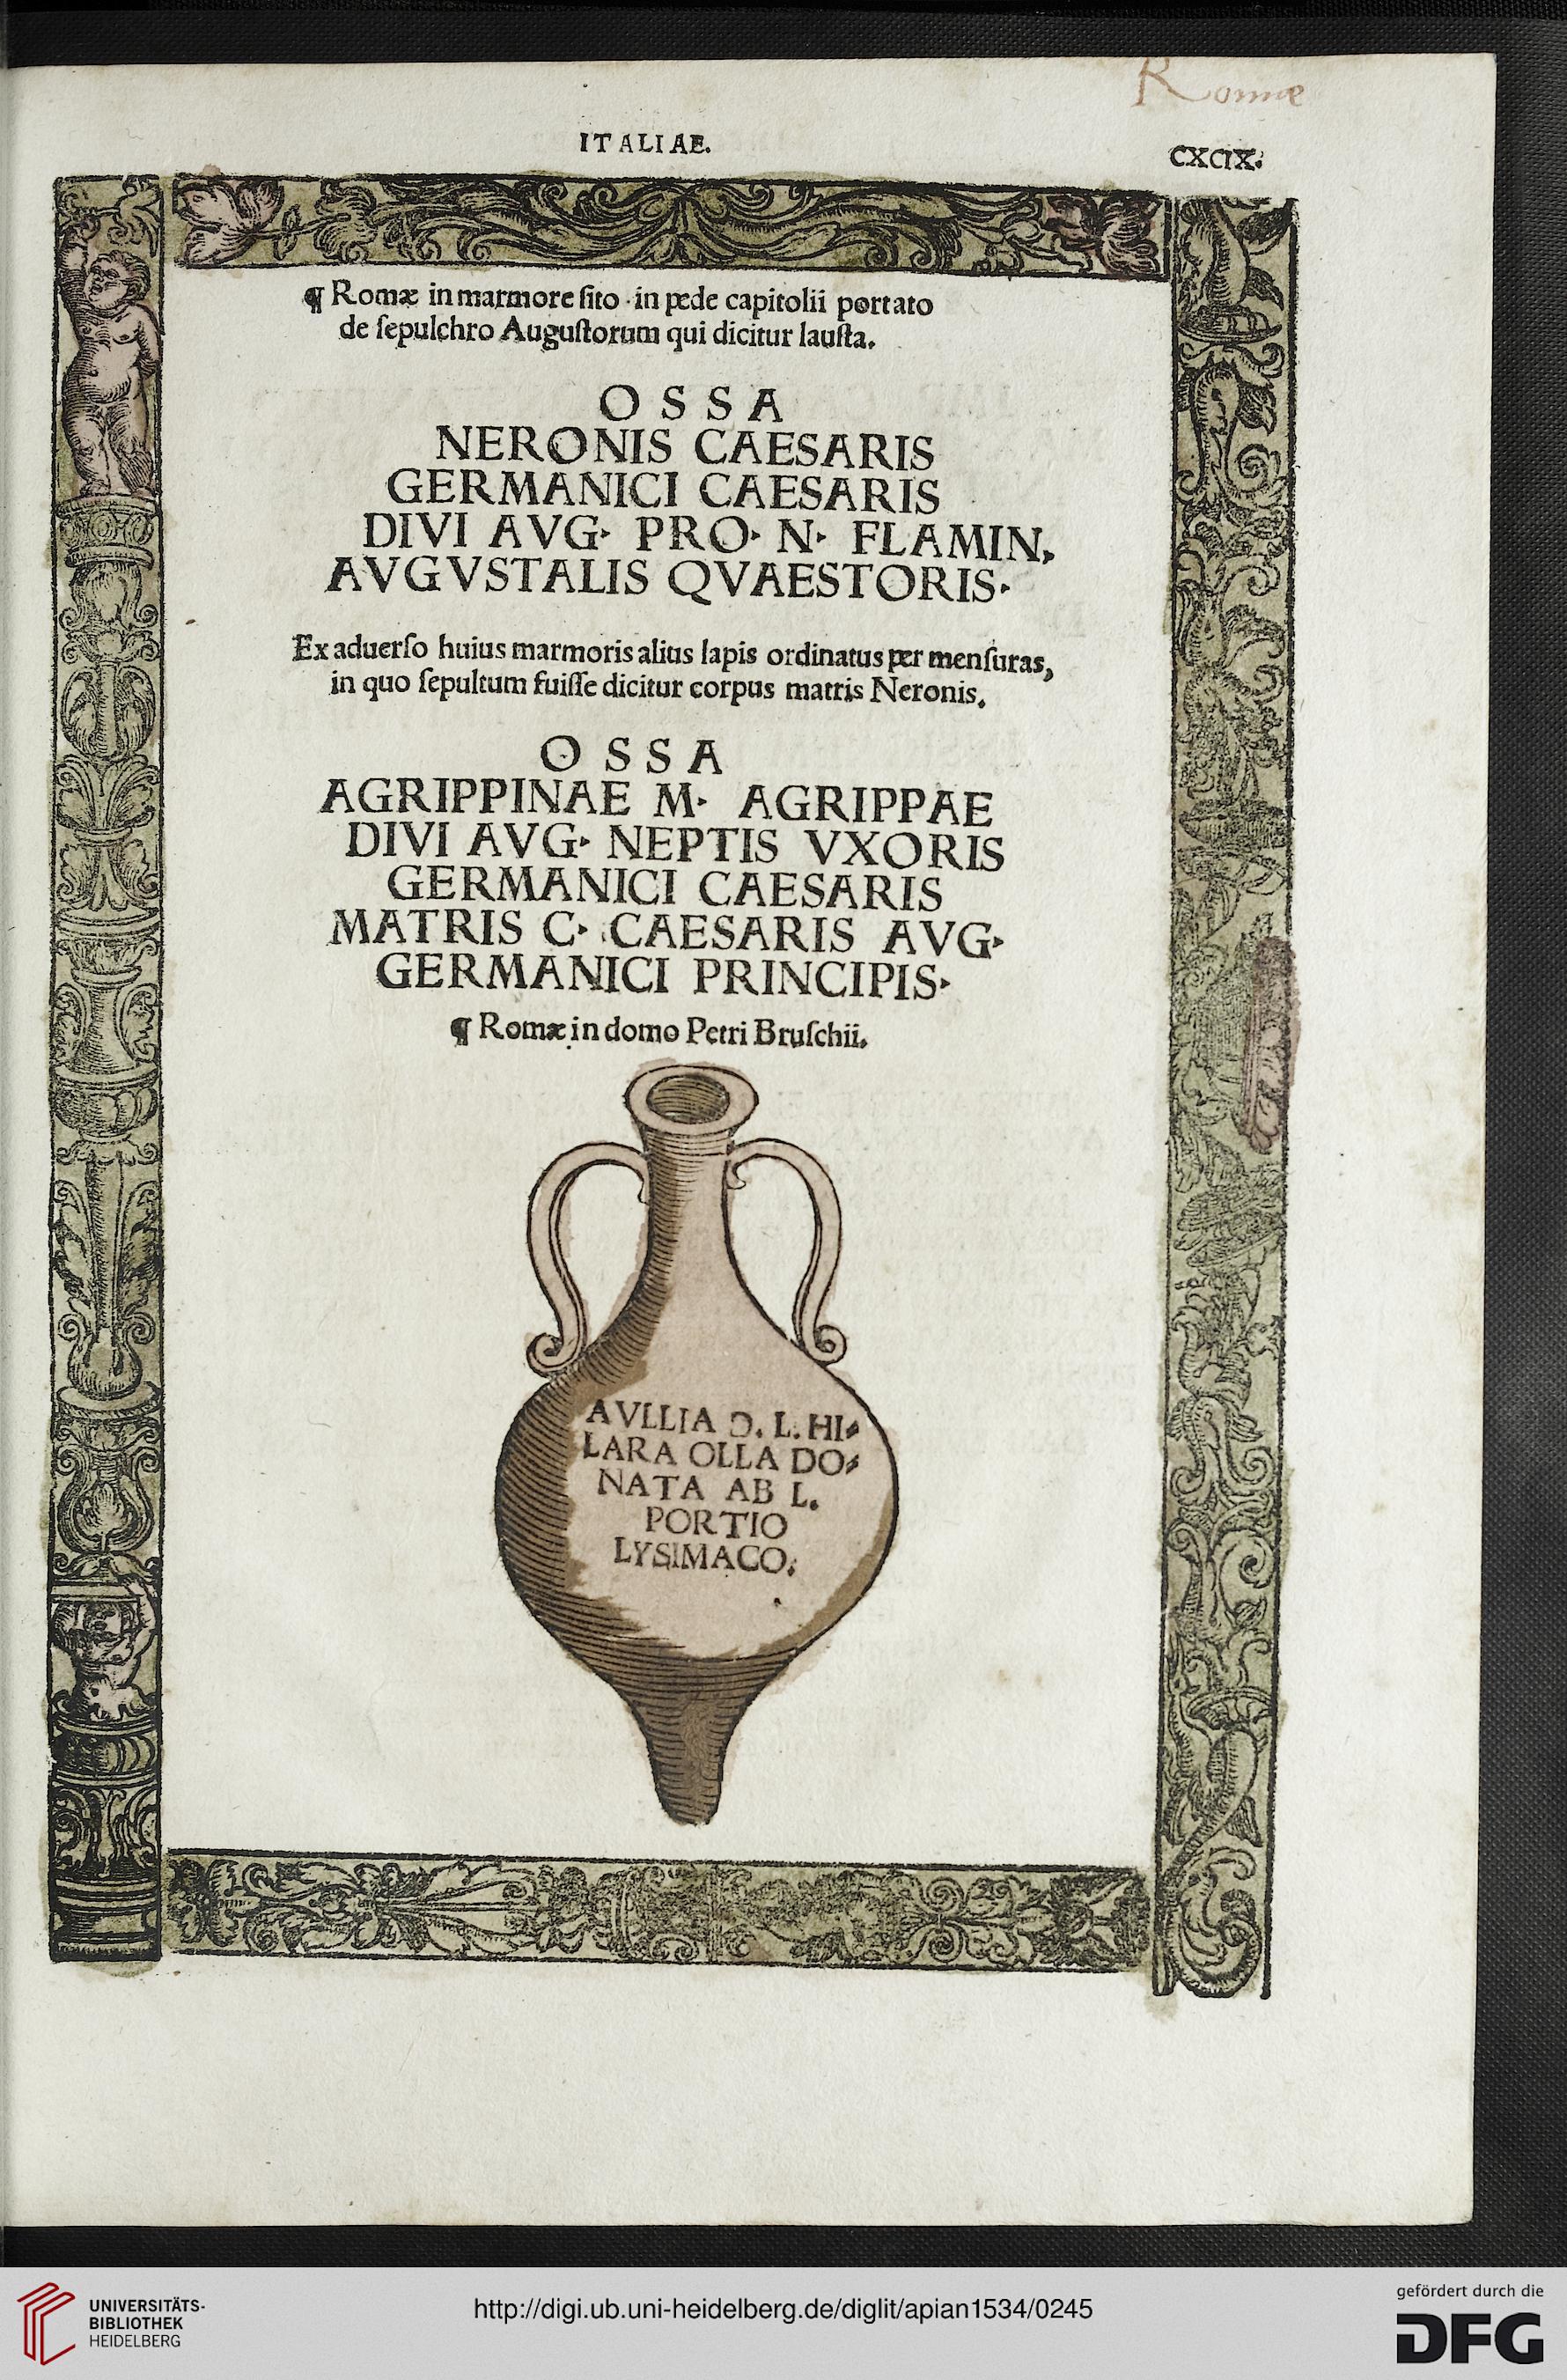 Romæ
ITALIAE.
CXCIX.
¶ Romæ in marmore ſito in pede capitolii portato
de ſepulchro Auguſtorum qui dicitur lauſta.
OSSA
NERONIS CAESARIS
GERMANICI CAESARIS
DIVI AVG· PRO· N· FLAMIN,
AVGVSTALIS QVAESTORIS·
Ex aduerſo huius marmoris alius lapis ordinatus per menſuras,
in quo ſepultum fuiſſe dicitur corpus matris Neronis.
OSSA
AGRIPPINAE M· AGRIPPAE
DIVI AVG· NEPTIS VXORIS
GERMANICI CAESARIS
MATRIS C· CAESARIS AVG·
GERMANICI PRINCIPIS·
¶ Romæ in domo Petri Bruſchii.
AVLLIA Ɔ. L. HI⸗
LARA OLLA DO⸗
NATA AB L.
PORTIO
LYSIMACO.
UNIVERSITÄTS-
BIBLIOTHEK
HEIDELBERG
http://digi.ub.uni-heidelberg.de/diglit/apian1534/0245
gefördert durch die
DFG